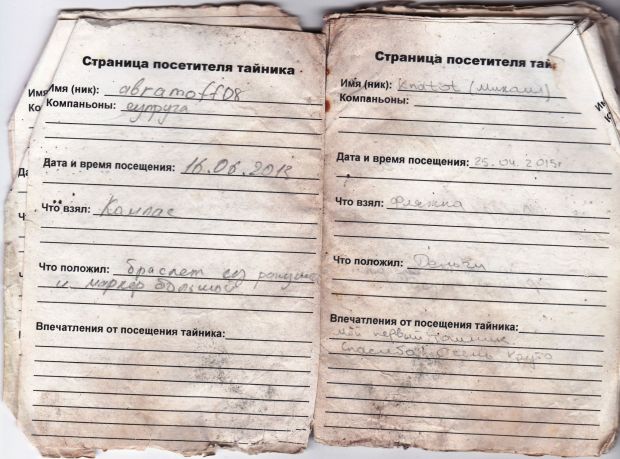 Страница посетителя тайника
Имя (ник): авратоff08
Компаньоны: супруга
Дата и время посещения: 16.06.2013
Что взял: Компас
Что положил: браслет из
и маркер большой
Впечатления от посещения тайника:
Страница посетителя тай
Имя (ник): Knotot (Михаил)
Компаньоны:
Дата и время посещения: 25.04.2015г
Что взял: Фляжка
Что положил: Деньги
Впечатления от посещения тайника:
мой первый тайник
Спасибо очень круто